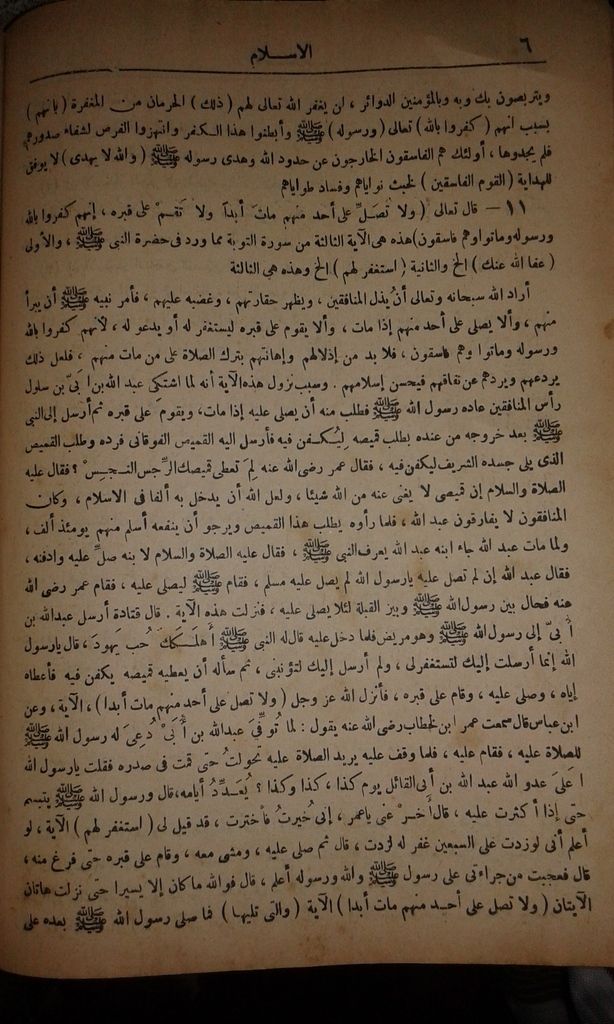 ٦
الاسلام
ويتربصون بك وبه وبالمؤمنين الدوائر ، ان يغفر الله تعالى لهم ( ذلك ) الحرمان من المغفرة ( بأنهم )
بسبب انهم ( كفروا بالله ) تعالى ( ورسوله ) ﷺ وأبطنوا هذا الكفر وانتهزوا الفرص لشفاء صدورهم
فلم يجدوها ، أولئك هم الفاسقون الخارجون عن حدود الله وهدى رسوله ﷺ ( والله لا يهدى ) لا يوفق
للهداية ( القوم الفاسقين ) لخبث نواياهم وفساد طواياهم
١١ — قال تعالى ( ولا تُصَلِّ على أحد منهم مات أبداً ولا تَقُمْ على قبره ، إنهم كفروا بالله
ورسوله وماتوا وهم فاسقون) هذه هى الآية الثالثة من سورة التوبة مما ورد فى حضرة النبى ﷺ ، والأولى
( عفا الله عنك ) الخ والثانية ( استغفر لهم ) الخ وهذه هى الثالثة
أراد الله سبحانه وتعالى أن يُذل المنافقين ، ويظهر حقارتهم ، وغضبه عليهم ، فأمر نبيه ﷺ أن يبرأ
منهم ، وألا يصلى على أحد منهم إذا مات ، وألا يقوم على قبره ليستغفر له أو يدعو له ، لأنهم كفروا بالله
ورسوله وماتوا وهم فاسقون ، فلا بد من إذلالهم وإهانتهم بترك الصلاة على من مات منهم ، فلعل ذلك
يردعهم ويردهم عن نفاقهم فيحسن إسلامهم . وسبب نزول هذه الآية أنه لما اشتكى عبد الله بن أبىّ بن سلول
رأس المنافقين عاده رسول الله ﷺ فطلب منه أن يصلى عليه إذا مات، ويقوم على قبره ثم أرسل إلى النبى
ﷺ بعد خروجه من عنده يطلب قميصه لِيُكفن فيه فأرسل اليه القميص الفوقانى فرده وطلب القميص
الذى يلى جسده الشريف ليكفن فيه ، فقال عمر رضى الله عنه لِمَ تعطى قميصك الرِّجس النجِسْ ؟ فقال عليه
الصلاة والسلام إن قميصى لا يغنى عنه من الله شيئا ، ولعل الله أن يدخل به ألفا فى الاسلام ، وكان
المنافقون لا يفارقون عبد الله ، فلما رأوه يطلب هذا القميص ويرجو أن ينفعه أسلم منهم يومئذ ألف ،
ولما مات عبد الله جاء ابنه عبد الله يعرف النبى ﷺ ، فقال عليه الصلاة والسلام لا بنه صلّ عليه وادفنه ،
فقال عبد الله إن لم تصل عليه يارسول الله لم يصل عليه مسلم ، فقام ﷺ ليصلى عليه ، فقام عمر رضى الله
عنه فحال بين رسول الله ﷺ وبين القبلة لئلا يصلى عليه ، فنزلت هذه الآية . قال قتادة أرسل عبدالله بن
أُبىّ إلى رسول الله ﷺ وهو مريض فلما دخل عليه قال له النبى ﷺ أَهلَكَكَ حُب يَهودَ ، قال يارسول
الله إنما أرسلت إليك لتستغفر لى ، ولم أرسل إليك لتؤنبنى ، ثم سأله أن يعطيه قميصه يكفن فيه فأعطاه
إياه ، وصلى عليه ، وقام على قبره ، فأنزل الله عز وجل ( ولا تصل على أحد منهم مات أبدا ) ، الآية ، وعن
ابن عباس قال سمعت عمر ابن الخطاب رضى الله عنه يقول : لما تُوفِّىَ عبدالله بن أُبَىّ دُعِىَ له رسول الله ﷺ
للصلاة عليه ، فقام عليه ، فلما وقف عليه يريد الصلاة عليه تحولتُ حتى قمت فى صدره فقلت يارسول الله
أَعَلَى عدو الله عبد الله بن أبى القائل يوم كذا ، كذا وكذا ؟ يُعَدِّدُ أيامه، قال ورسول الله ﷺ يتبسم
حتى إذا أكثرت عليه ، قال أَخِّرْ عنى ياعمر ، إنى خُيرتُ فاخترت ، قد قيل لى ( استغفر لهم ) الآية ، لو
أعلم أنى لو زدت على السبعين غفر له لزدت ، قال ثم صلى عليه ، ومشى معه ، وقام على قبره حتى فرغ منه ،
قال فعجبت من جراءتى على رسول ﷺ والله ورسوله أعلم ، قال فوالله ما كان إلا يسيرا حتى نزلت هاتان
الآيتان ( ولا تصل على أحد منهم مات أبدا ) الآية ( والتى تليها ) فما صلى رسول الله ﷺ بعده على